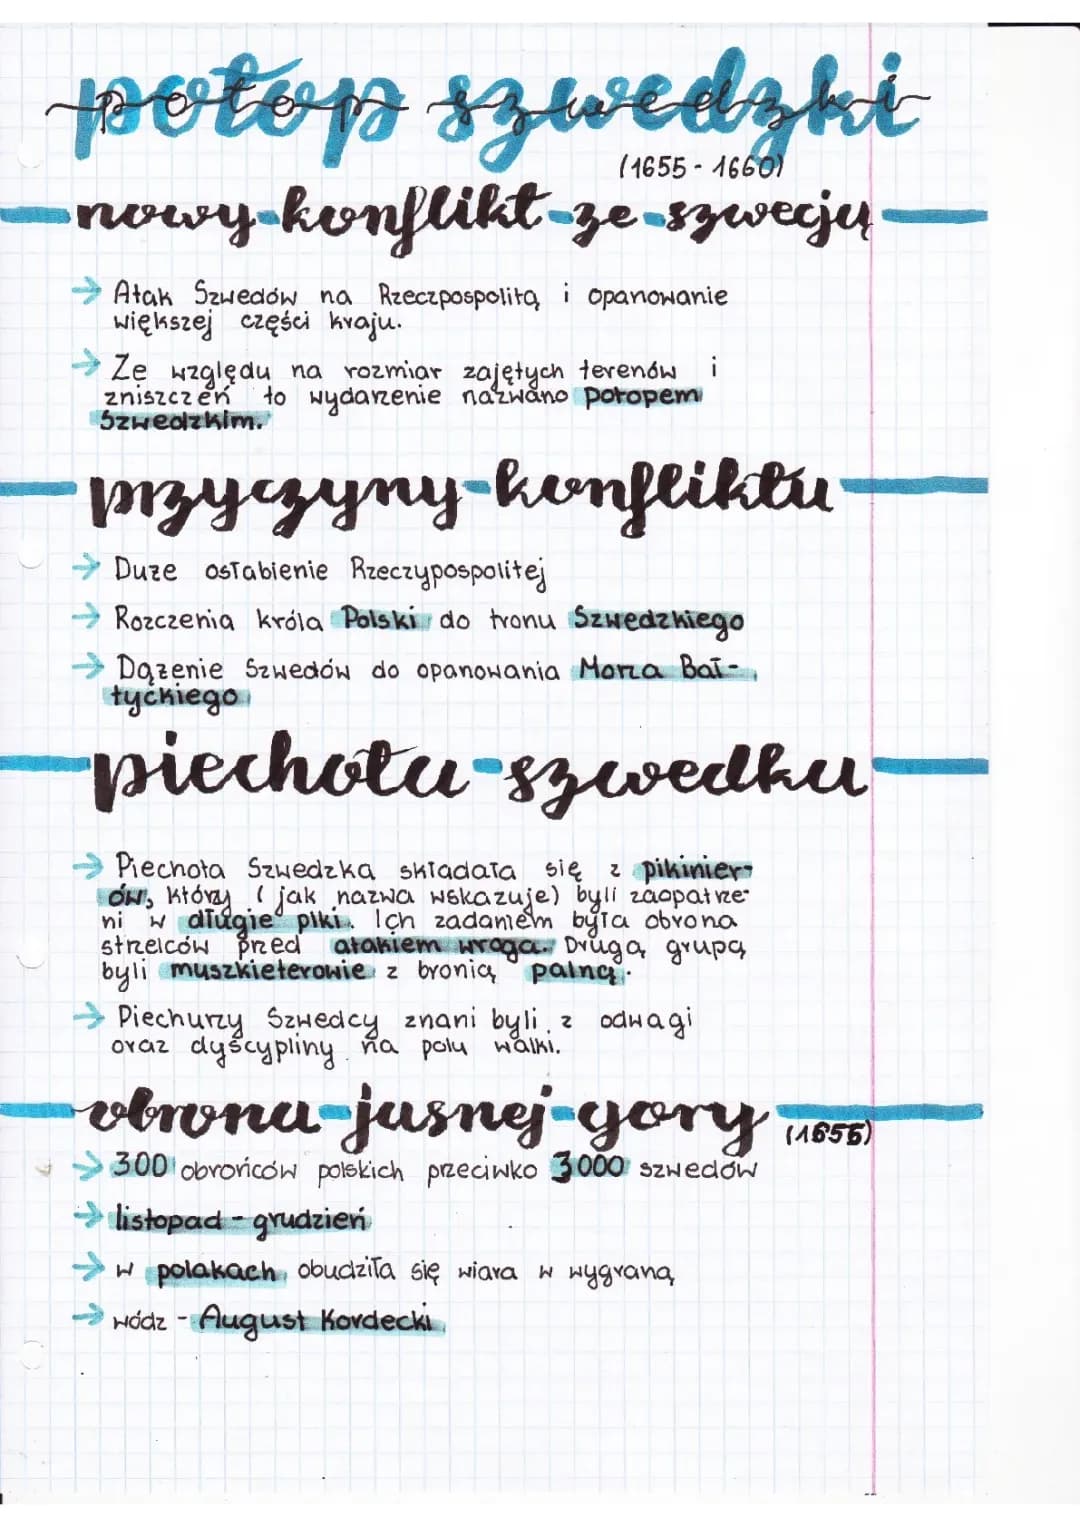 potop szwedzki
(1655 - 1660)
nowy konflikt ze szwecją
→ Atak Szwedów na Rzeczpospolitą i opanowanie
większej części kraju.
→ Ze względu na rozmiar zajętych terenów i
zniszczeń to wydarzenie nazwano Potopem
Szwedzkim.
przyczyny konfliktu
→ Duże osłabienie Rzeczypospolitej
→ Rozczenia króla Polski do tronu Szwedzkiego
→ Dążenie Szwedów do opanowania Morza Bał-
tyckiego
piechota szwedka
→ Piechota Szwedzka składała się z pikinier-
ów, którzy (jak nazwa wskazuje) byli zaopatrze-
ni w długie piki. Ich zadaniem była obrona
strzelców przed atakiem wroga. Drugą grupą
byli muszkieterowie z bronią palną.
→ Piechurzy Szwedcy znani byli z odwagi
oraz dyscypliny na polu walki.
obrona jasnej gory (1655)
→ 300 obrońców polskich przeciwko 3000 szwedów
→ listopad - grudzień
→ w polakach obudziła się wiara w wygraną
→ wódz - August Kordecki